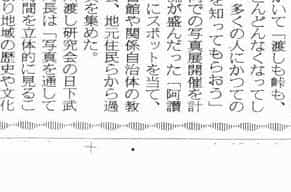 いて「渡しも峠も、
んどんなくなってし
多くの人にかつての
を知ってもらおう」
での写真展開催を計
が盛んだった「阿讃
にスポットを当て、
館や関係自治体の教
、地元住民らから過
を集めた。
渡し研究会の日下武
長は「写真を通して
間を立体的に見るこ
り地域の歴史や文化